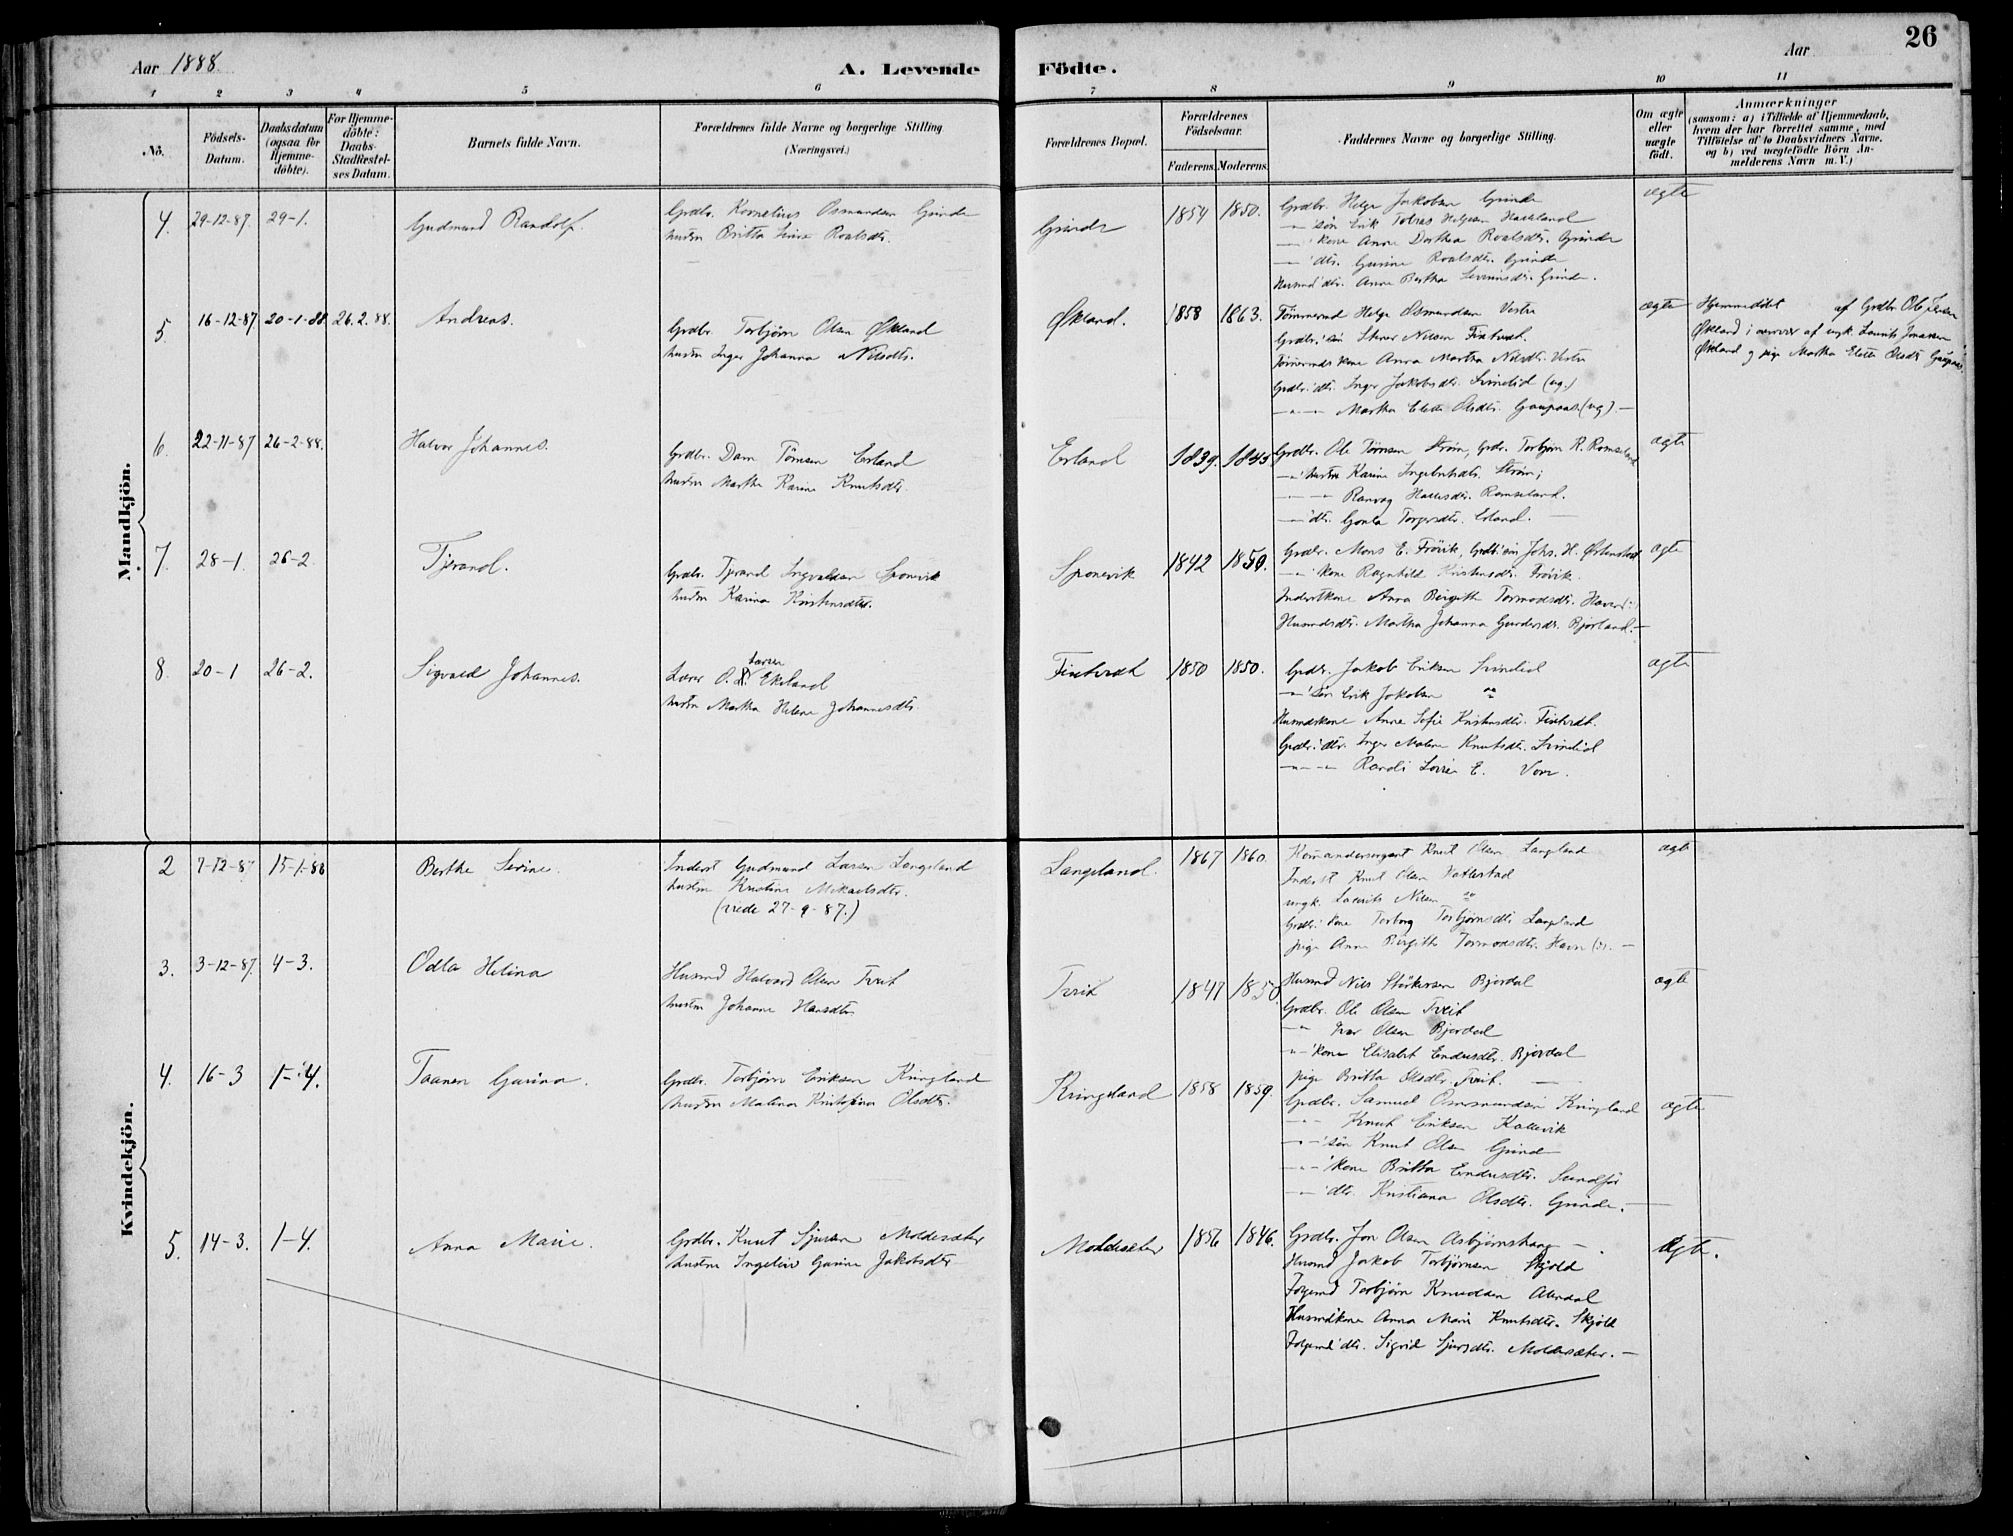 26
Aar 1888.
A. Levende Födte.
Aar
1 2 3 4 5 6 7 8 9 10 11
No.
Födsels-
Datum.
Daabsdatum
(ogsaa for
Hjemme-
döbte).
For Hjemme-
döbte:
Daabs-
Stadfæstel-
ses Datum.
Barnets fulde Navn.
Forældrenes fulde Navne og borgerlige Stilling
(Næringsvei.)
Forældrenes Bopæl.
Forældrenes
Födselsaar.
Faderens. Moderens.
Faddernes Navne og borgerlige Stilling.
Om ægte
eller
uægte
födt.
Anmærkninger
(saasom: a) i Tilfælde af Hjemmedaab,
hvem der har forrettet samme, med
Tilföielse af to Daabsvidners Navne.
og b) ved uægtefödte Börn An-
melderens Navn m. V.)
Mandkjön.
4. 29-12-87. 29-1. Gudmund Randolf.
Grdbr. Kornelius Osmundsen Grinde
hustru Britta Roaldsdtr.
Grinde 1854 1850.
Grdbr. Helge Jakobsen Grinde
-"- søn Erik Tobias Helgesen
-"- kone Anne Dorthea Roalsdtr. Grinde
-"- dtr. Gurine Roalsdtr. Grinde
Husmd' dtr. Anne Bertha Grinde.
ægte
5 16-12-87. 20-1-88. 26.2.88. Andreas.
Grdbr. Torbjørn Olsen Økland
hustru Inger Johanna Nilsdtr.
Økland. 1858 1863.
Tømmermd Helge Osmundsen Vestre
Grdbr.' søn Stener Nilsen
Tømmermds kone Anna Martha Nilsdtr. Vestre
Grdbr.' dtr. Inger Jakobsdtr. Svinelid (ug.)
-"-"- Martha Elette Olsdtr. Gaupaas (ug) -
ægte
Hjemmedøbt af Grdbr. Ole
Økland i nærvær af ungk. Laurits Jonassen
Økland og pige Martha Elette Olsdtr Gaupaas
6. 22-11-87 26-2-88. Halvor Johannes.
Grdbr. Dam Tørresen Erland
hustru Martha Karine Knutsdtr.
Erland 1839. 1845
Grdbr. Ole Tørresen Strøm, Grdbr. Torbjørn R. Romseland
-"- hustru Karine Strøm;
-"-"- Ranvag Romseland.
-"- dtr. Gonla Torgersdtr. Erland. -
ægte
7. 28-1. 26-2. Tjerand.
Grdbr. Tjerand Ingvaldsen Sponevik
hustru Karina Kristensdtr.
Sponevik 1842 1850.
Grdbr. Mons E. Frøvik, Grdbr.' søn Johs. H.
-"- kone Ragnhild Kristensdtr. Frøvik.
Inderstkone Anna Birgitte Tormodsdtr.
Husmdsdtr. Martha Johanna Bjorland. -
ægte
8. 20-1 26-2. Sigvald Johannes.
Larsen
Lærer O. Ekeland
hustru Martha Helene Johannesdtr
1850 1850.
Grdbr. Jakob Eriksen Svinelid
-"- søn Erik Jakobsen "
Husmdskone Anne Sofie Kristensdtr.
Grdbr.' dtr. Inger Malene Knutsdtr. Svinelid
-"-"- Randi E.
ægte
Kvindekjön.
2 7-12-87 15-1-88 Berthe Serine.
Inderst Gudmund Larsen Langeland
hustru Kristine Mikaelsdtr.
(viede 27-9-87.)
Langeland. 1867 1860.
Knut Olsen Langeland
Inderst Knut Olsen Vatlestad
ungk. Laurits Nilsen "
Grdbr.' kone Torborg Torbjørnsdtr Langeland
pige Anne Birgitte Tormodsdtr.
ægte
3. 3-12-87. 4-3. Odla Helina
Husmd Halvard Olsen Tveit
hustru Johanne Hansdtr.
Tveit 1841 1850
Husmd Nils Bjordal
Grdbr. Ole Olsen Tveit
-"- Ivar Olsen Bjordal
-"- kone Elisabet Endresdtr. Bjordal
pige Britta Olsdtr. Tveit. -
ægte
4. 16-3 1-4. Taanen Gurina.
Grdbr. Torbjørn Eriksen Kringeland
hustru Malena Kristofina Olsdtr.
Kringeland 1858 1859.
Grdbr. Samuel Osmundsen Kringeland
-"- Knut Eriksen Kallevik
-"- søn Knut Olsen Grinde
-"- kone Britta Endresdtr. Sundfør
-"- dtr. Kristiana Olsdtr. Grinde. -
ægte
5. 14-3. 1-4. Anna Marie.
Grdbr. Knut Sjursen Moldesæter
hustru Ingeliv Gurine Jakobsdtr
Moldesæter 1856 1846.
Grdbr. Jon Olsen Asbjørnshaug -
Husmd Jakob Torbjørnsen Skjold
Torbjørn Knudsen
Husmdkone Anna Marie Knutsdtr. Skjold
dtr. Sigrid Sjursdtr. Moldesæter. -
Ægte.